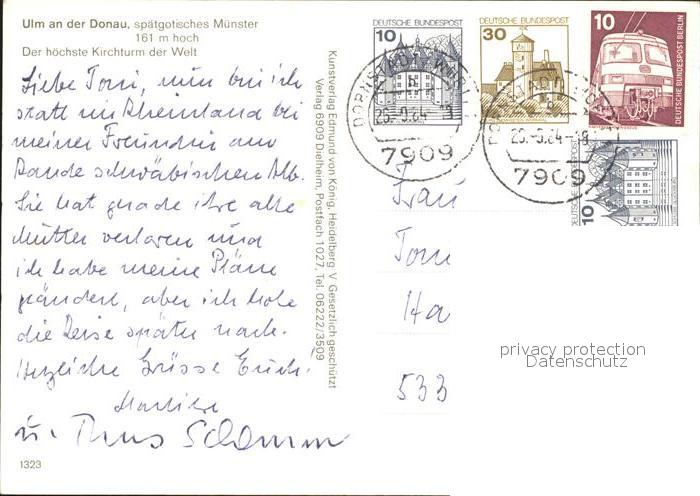 Ulm an der Donau, spätgotisches Münster
161 m hoch
Der höchste Kirchturm der Welt
Liebe Toni, nun bin ich
statt im Rheinland bei
meiner Freundin am
Rande schwäbischen Alb.
Sie hat grade ihre alte
Mutter verloren und
ich habe meine Pläne
geändert, aber ich hole
die Reise später nach.
Herzliche Grüsse Euch!
u.
1323
Kunstverlag Edmund von König, Heidelberg V Gesetzlich geschützt
Verlag 6909 Dielheim, Postfach 1027, Tel. 06222/3509
DEUTSCHE BUNDESPOST
10
DEUTSCHE BUNDESPOST
30
10
DEUTSCHE BUNDESPOST BERLIN
DEUTSCHE BUNDESPOST
10
DORNSTADT
7909
7909
Frau
Toni
Ha
533
privacy protection
Datenschutz